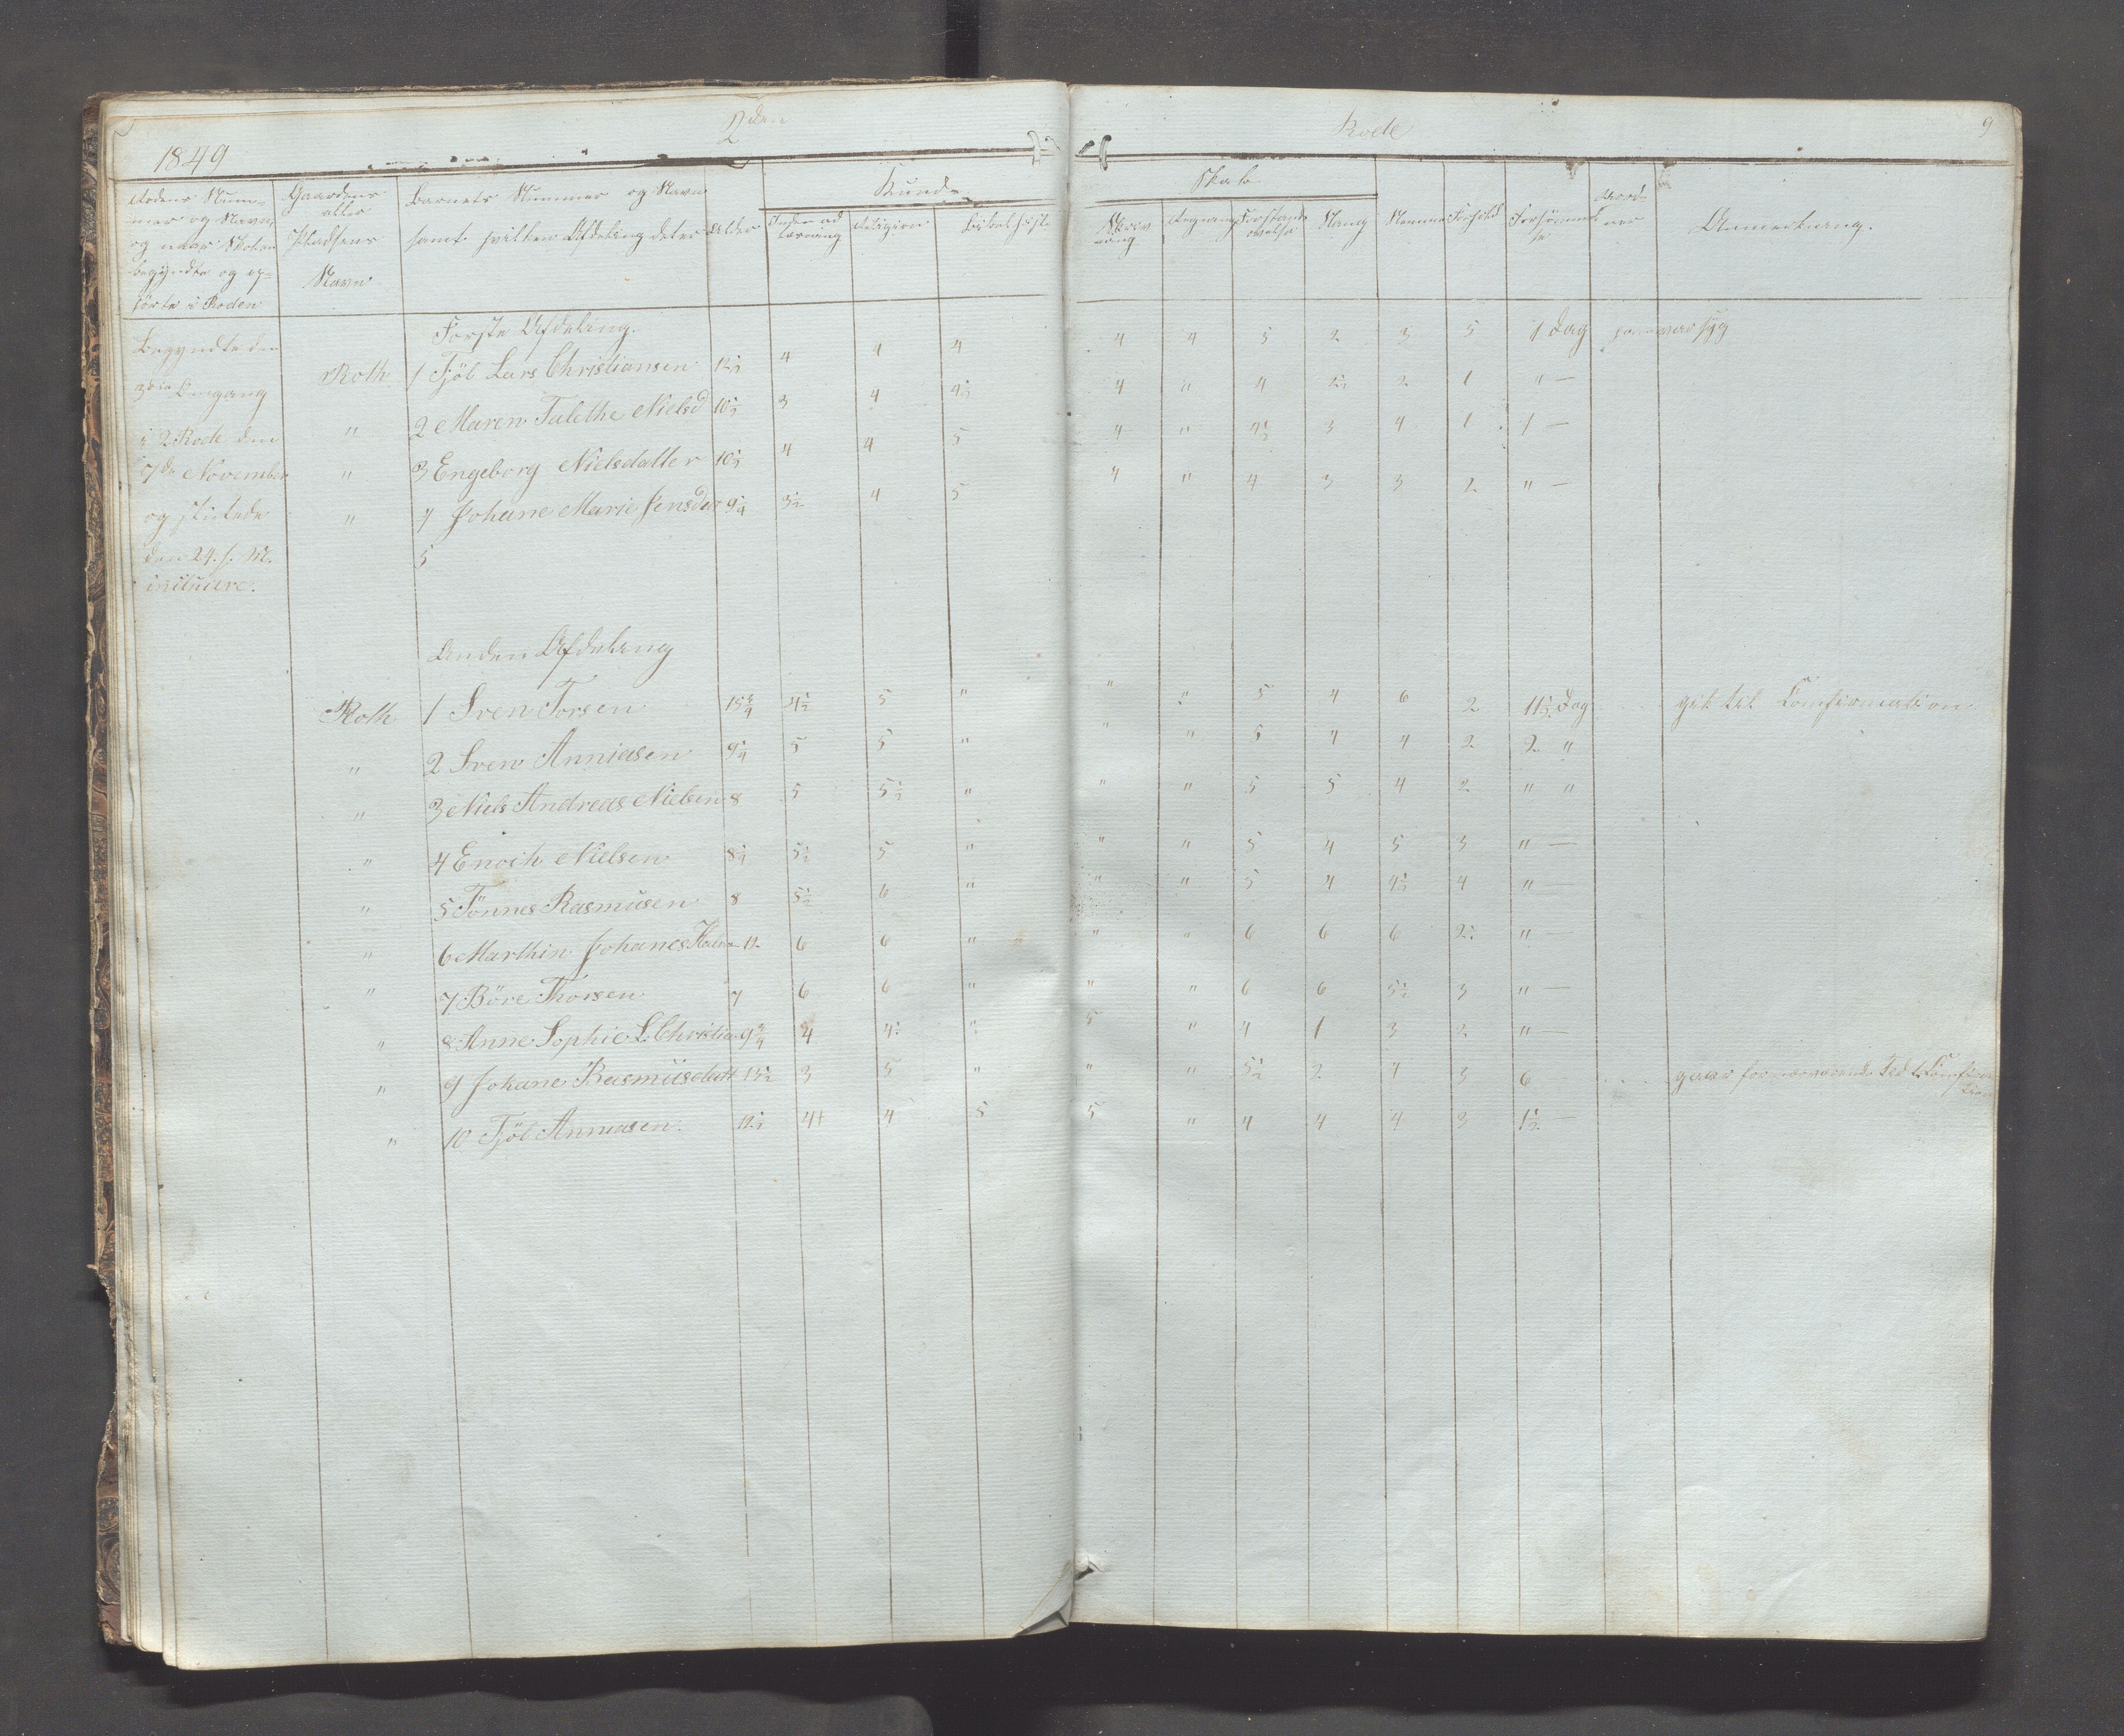 2den Rode 9
1849
Rodens Num-
mer og Navn,
og naar Skolen
begyndte og op-
hörte i Roden
Gaardens
eller
Pladsens
Navn
Barnets Nummer og Navn
samt hvilken Afdeling det er
Alder
Kund-
Inden ad
læsning
Religion
Bibelhist
skab
Skriv
ning
Regning
Forstands
övelse
Sang
Nemme
Forhold
Forsömmel
se
Anmerkning.
Begyndte den
3die Omgang
i 2 Rode den
7de November
og sluttede
den 24. s. M.
inclusive.
Forste Afdeling.
Roth 1 Tjöl Lars Christiansen 12½ 4 4 4 4 4 5 2 3 5 1 Dag var syg
" 2 Maren Talethe Nielsd 10½ 3 4 4½ 4 " 4 1½ 2 1 " —
" 3 Engeborg Nielsdatter 10½ 4 4 5 4 " 4½ 3 4 1 1 —
" 4 Johane Marie Jensdat 9¼ 3½ 4 5 4 " 4 3 3 2 " —
5
Anden Afdeling
Roth 1 Sven Torsen 15¾ 4½ 5 " " " 5 4 6 2 11½ Dag gik til Comfirmation
" 2 Sven Anniasen 9¼ 5 5 " " " 5 4 4 2 2 "
" 3 Niels Andreas Nielsen 8 5 5½ " " " 5 5 4 2 " "
" 4 Enoch Nielsen 8¼ 5½ 5 " " " 5 4 5 3 " —
" 5 Tönnes Rasmusen 8 5½ 6 " " " 5 4 4½ 4 " —
" 6 Marthin Johanes 12 6 6 " " " 6 6 6 2½ " —
" 7 Böre Thorsen 7 6 6 " " " 6 6 5½ 3 " —
" 8 Anne Sophie L. Christia 9¾ 4 4½ " 5 " 4 1 3 2 " —
" 9 Johane Rasmusdatt 15½ 3 5 " " " 5½ 2 4 3 6 gaar for nærværende Tid t. Comfirma
tion
" 10 Tjöl Anniasen. 12½ 4+ 4 5 5 " 4 4 4 3 1½ —